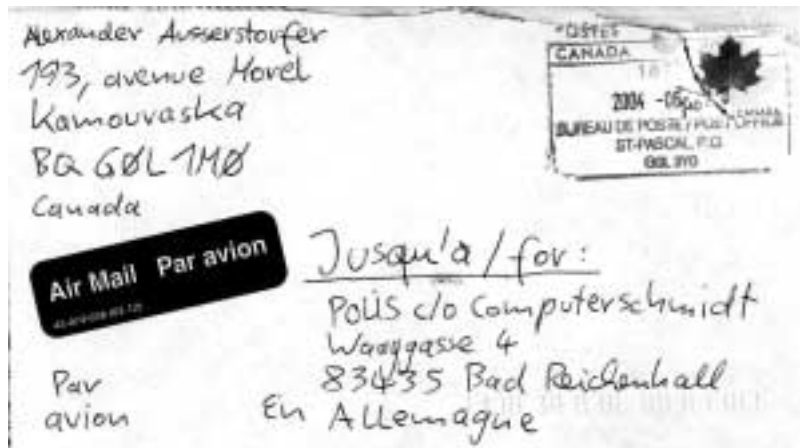 Alexander Ausserstorfer
193, avenue Morel
Kamouraska
BQ GØL 1MØ
Canada
POSTES
CANADA
2004 -05
BUREAU DE POSTE / POST OFFICE
ST-PASCAL, P.Q.
Air Mail Par avion
Jusqu'a / for:
POLIS c/o Computerschmidt
Waaggasse 4
83435 Bad Reichenhall
En Allemagne
Par
avion